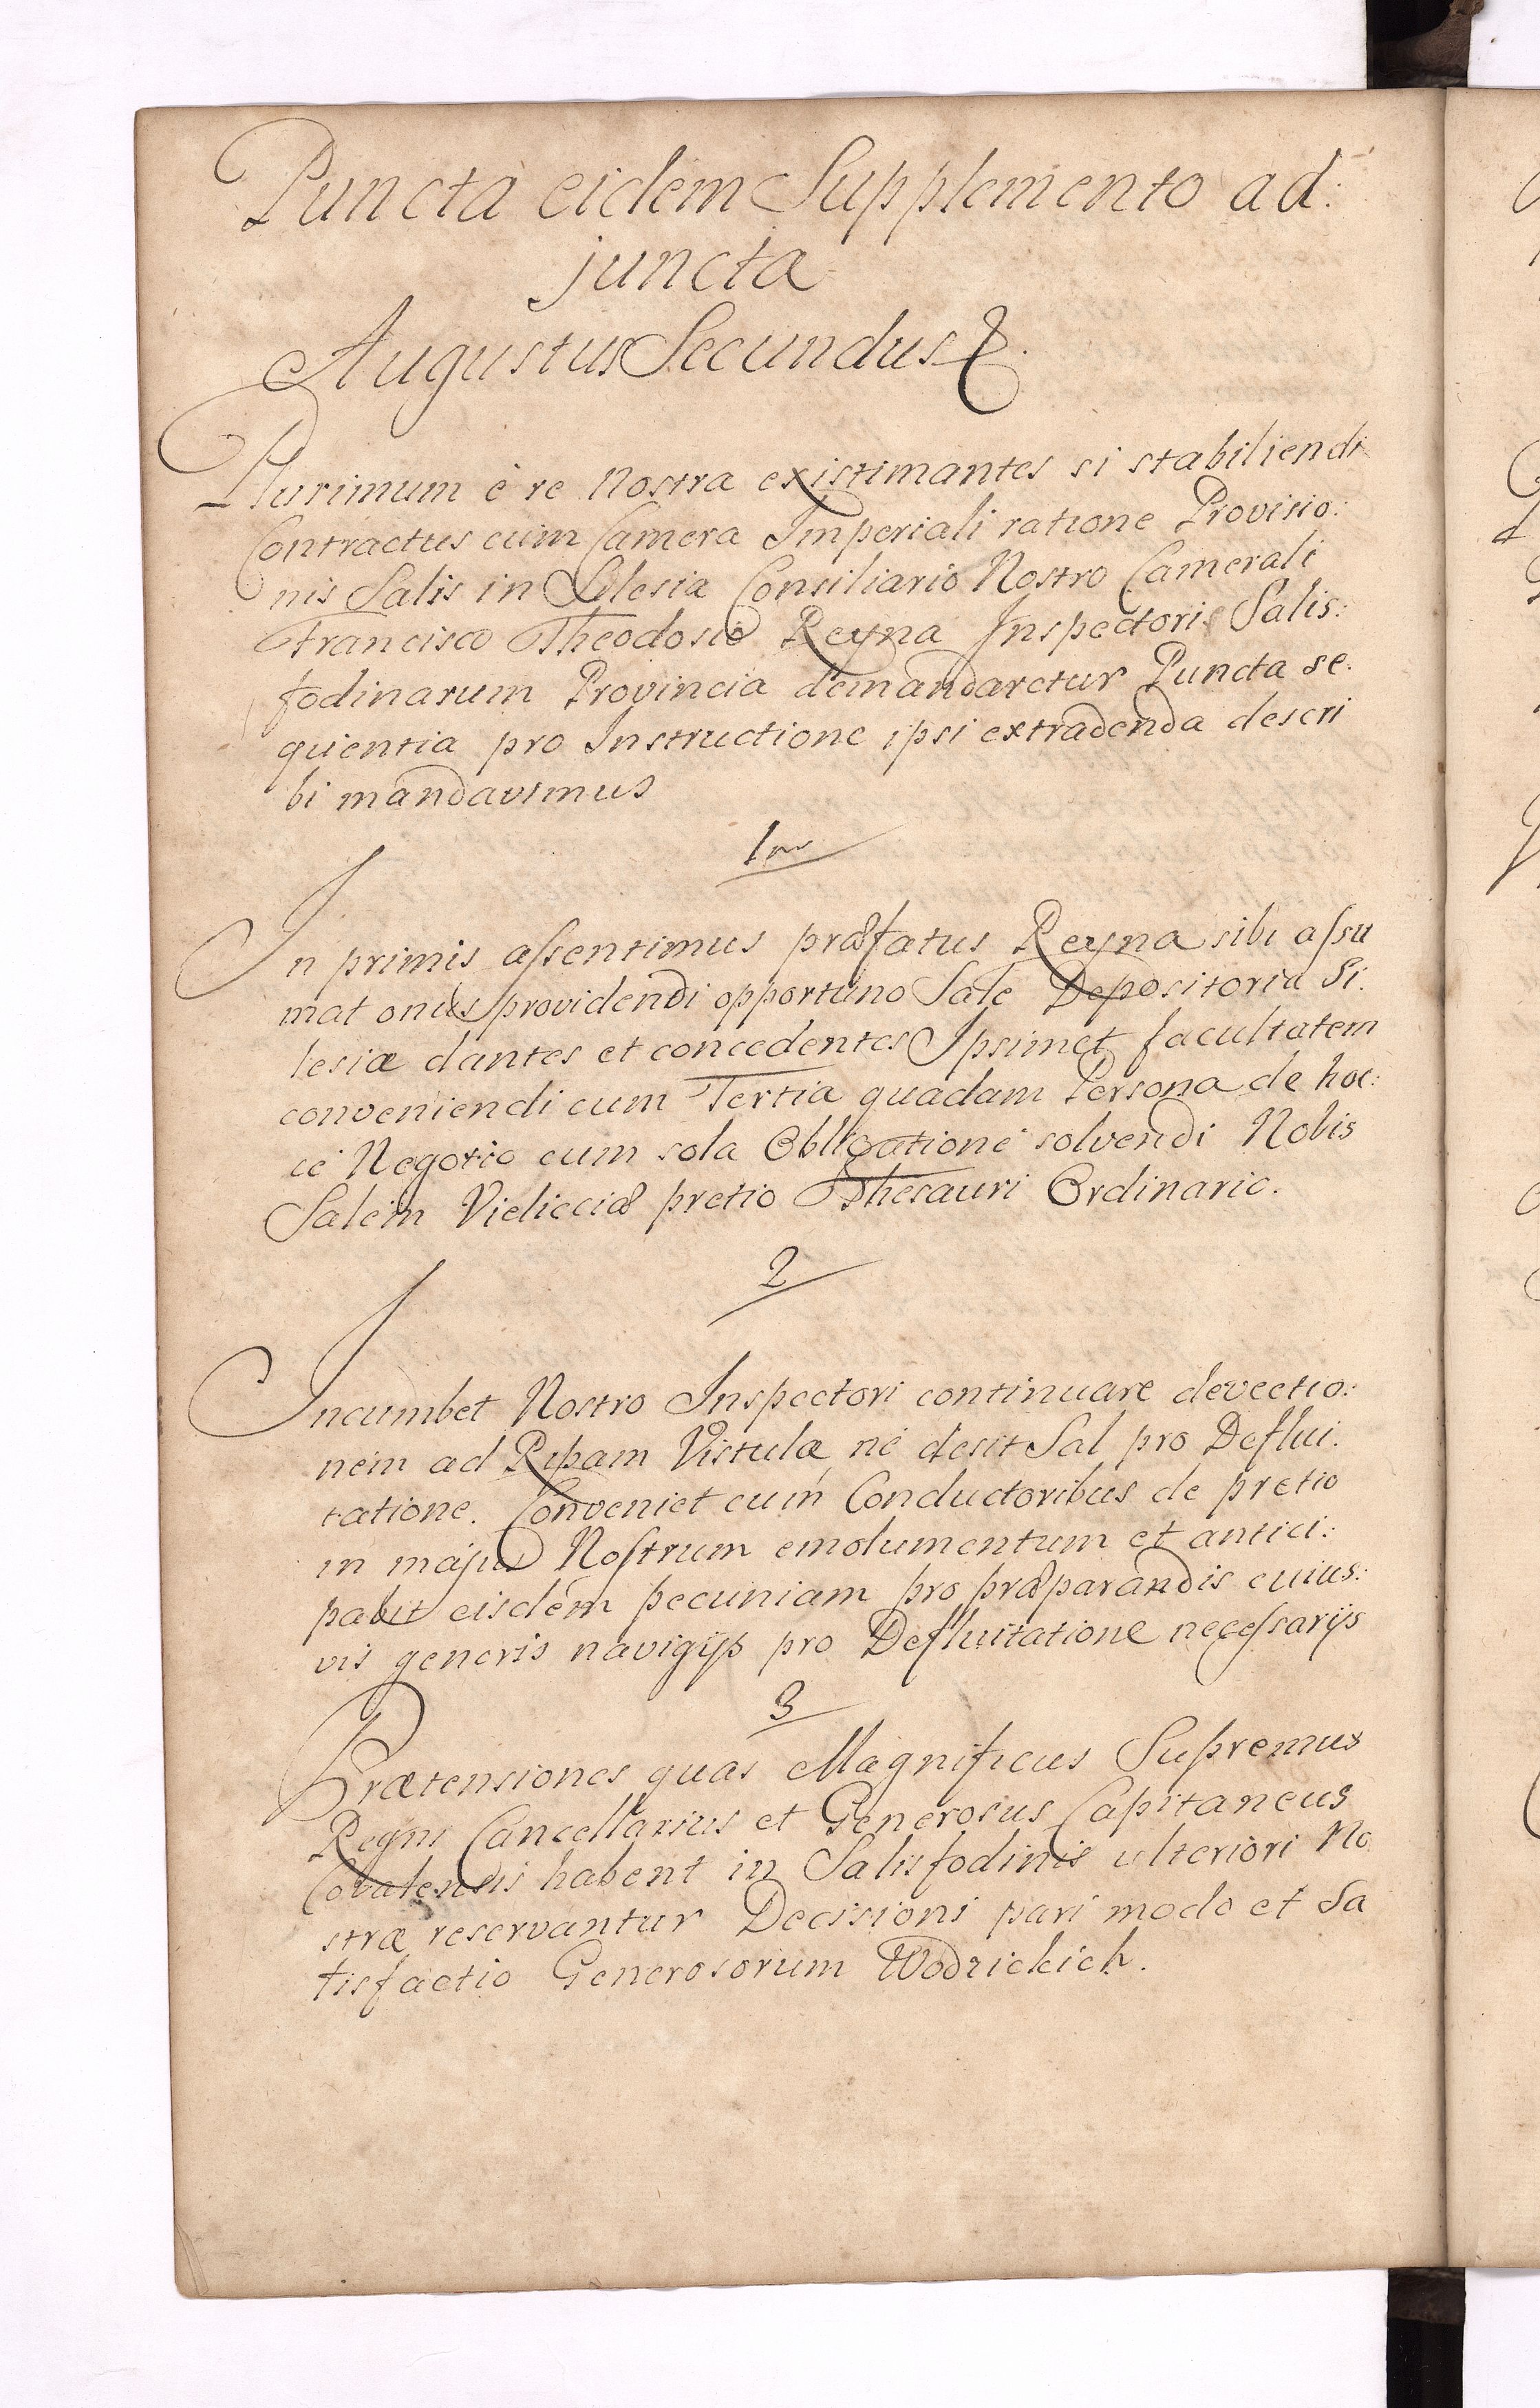 Puncta eidem Supplemento ad:
juncta
Augustus Secundus &.
Plurimum è re Nostra existimantes si stabiliendi
Contractus cum Camera Imperiali ratione Provisio:
nis Salis in Silesia Consiliario Nostro Camerali
Francisco Theodosio Reyna Inspectori Salis:
fodinarum Provincia demandaretur Puncta se:
quentia pro Instructione ipsi extradenda descri
bi mandavimus
1mo
In primis assentimus præfatus Reyna sibi assu
mat onus providendi opportuno Sale Depositoria Si:
lesiæ dantes et concedentes Ipsimet facultatem
conveniendi cum Tertia quadam Persona de hoc:
ce Negotio cum sola Obligatione solvendi Nobis
Salem Vielicciæ pretio Thesauri Ordinario.
2
Incumbet Nostro Inspectori continuare devectio:
nem ad Ripam Vistulæ ne desit Sal pro Deflui:
tatione. Conveniet cum Conductoribus de pretio
in majus Nostrum emolumentum et antici:
pabit eisdem pecuniam pro præparandis cuius:
vis generis navigijs pro Defluitatione necessarijs
3
Prætensiones quas Magnificus Supremus
Regni Cancellarius et Generosus Capitaneus
habent in Salisfodinis ulteriori No
stræ reservantur Decisioni pari modo et Sa
tisfactio Generosorum Wodzickich.